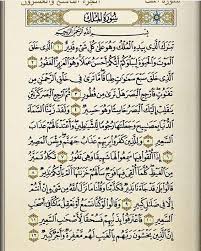 الجزء التاسع والعشرون سورة الملك
سُورَةُ الْمُلْكِ
بِسْمِ اللَّهِ الرَّحْمَٰنِ الرَّحِيمِ
تَبَٰرَكَ الَّذِي بِيَدِهِ الْمُلْكُ وَهُوَ عَلَىٰ كُلِّ شَيْءٍ قَدِيرٌ ١ الَّذِي خَلَقَ
الْمَوْتَ وَالْحَيَوٰةَ لِيَبْلُوَكُمْ أَيُّكُمْ أَحْسَنُ عَمَلًا وَهُوَ الْعَزِيزُ الْغَفُورُ ٢
الَّذِي خَلَقَ سَبْعَ سَمَٰوَٰتٍ طِبَاقًا مَّا تَرَىٰ فِي خَلْقِ الرَّحْمَٰنِ مِن
تَفَٰوُتٍ فَارْجِعِ الْبَصَرَ هَلْ تَرَىٰ مِن فُطُورٍ ٣ ثُمَّ ارْجِعِ الْبَصَرَ
كَرَّتَيْنِ يَنقَلِبْ إِلَيْكَ الْبَصَرُ خَاسِئًا وَهُوَ حَسِيرٌ ٤ وَلَقَدْ زَيَّنَّا السَّمَآءَ
الدُّنْيَا بِمَصَٰبِيحَ وَجَعَلْنَٰهَا رُجُومًا لِّلشَّيَٰطِينِ وَأَعْتَدْنَا لَهُمْ عَذَابَ
السَّعِيرِ ٥ وَلِلَّذِينَ كَفَرُوا بِرَبِّهِمْ عَذَابُ جَهَنَّمَ وَبِئْسَ الْمَصِيرُ ٦
إِذَآ أُلْقُوا فِيهَا سَمِعُوا لَهَا شَهِيقًا وَهِيَ تَفُورُ ٧ تَكَادُ تَمَيَّزُ
مِنَ الْغَيْظِ كُلَّمَآ أُلْقِيَ فِيهَا فَوْجٌ سَأَلَهُمْ خَزَنَتُهَآ أَلَمْ يَأْتِكُمْ نَذِيرٌ ٨
قَالُوا بَلَىٰ قَدْ جَآءَنَا نَذِيرٌ فَكَذَّبْنَا وَقُلْنَا مَا نَزَّلَ اللَّهُ مِن شَيْءٍ إِنْ أَنتُمْ
إِلَّا فِي ضَلَٰلٍ كَبِيرٍ ٩ وَقَالُوا لَوْ كُنَّا نَسْمَعُ أَوْ نَعْقِلُ مَا كُنَّا فِيٓ أَصْحَٰبِ
السَّعِيرِ ١٠ فَاعْتَرَفُوا بِذَنبِهِمْ فَسُحْقًا لِّأَصْحَٰبِ السَّعِيرِ ١١
إِنَّ الَّذِينَ يَخْشَوْنَ رَبَّهُم بِالْغَيْبِ لَهُم مَّغْفِرَةٌ وَأَجْرٌ كَبِيرٌ ١٢